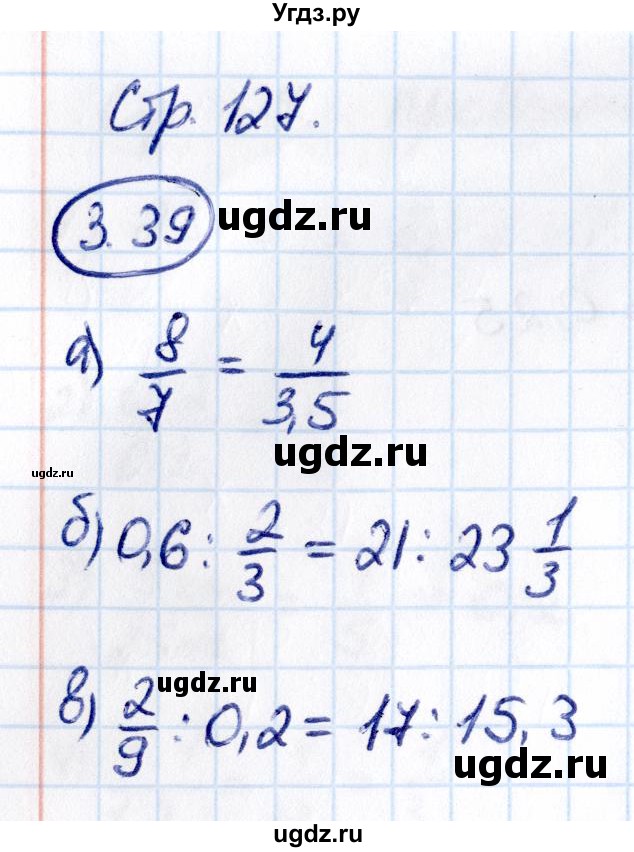 Угдз.ру
Стр. 127.
3.39
ugdz.ru
а) 8/7 = 4/3,5
ugdz.ru
ugdz.ru
б) 0,6 : 2/3 = 21 : 23 1/3
ugdz.ru
в) 2/9 : 0,2 = 17 : 15,3
ugdz.ru
ugdz.ru